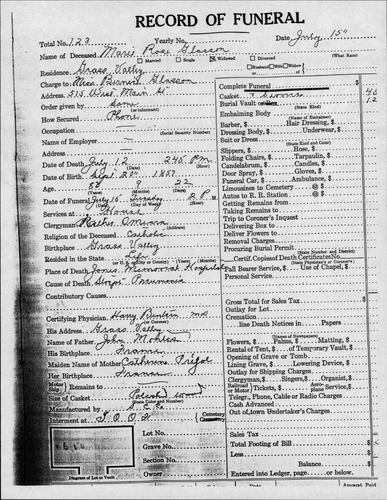 RECORD OF FUNERAL
Total No. 123 Yearly No. Date July 15"
Name of Deceased Marie Rose Glasson
Married Single Widowed Divorced
Residence Grass Valley
Charge to Miss Bernice Glasson
Address 515 West Main St
Order given by Same
How Secured Phone
Occupation
(Social Security Number)
Name of Employer
Address
Date of Death July 12 2:40 P.M.
Date of Birth Sept. 20th 1857
(Years) (Months) (Days)
Date of Funeral July 15 2 P.M.
Services at
Clergyman
Religion of the Deceased Catholic
Birthplace Grass Valley
Resided in the State Life
Place of Death Jones Memorial Hospital
Cause of Death Pneumonia
Contributory Causes
Certifying Physician Harry M.D.
His Address Grass Valley
Name of Father John
His Birthplace France
Maiden Name of Mother Catherine
Her Birthplace France
Body Remains to
Size of Casket
(State Color and Number)
Manufactured by
Interment at I.O.O.F. Cemetery
Lot No.
Grave No.
Section No.
Owner
Diagram of Lot or Vault
Complete Funeral
Casket
Burial Vault or Box
(State Kind)
Embalming Body
(Name of Embalmer)
Barber, $ Hair Dressing, $
Dressing Body, $ Underwear, $
Suit or Dress
(State Kind and Color)
Slippers, $ Hose, $
Folding Chairs, $ Tarpaulin, $
Candelabrum, $ Candles, $
Door Spray, $ Gloves, $
Funeral Car, $ Ambulance, $
Limousines to Cemetery @ $
Autos to R. R. Station @ $
Getting Remains from
Taking Remains to
Trip to Coroner's Inquest
Delivering Box to
Deliver Flowers to
Removal Charges
Procuring Burial Permit
(State Number and District)
Certif. Copies of Death Certificates No.
(State Physician's or Coroner's)
Pall Bearer Service, $ Use of Chapel, $
Personal Service
Gross Total for Sales Tax
Outlay for Lot
Cremation
line Death Notices in Papers
(Names of Newspapers)
Flowers, $ Palms, $ Matting, $
Rental of Tent, $ of Temporary Vault, $
Opening of Grave or Tomb
Lining Grave, $ Lowering Device, $
Outlay for Shipping Charges
Clergyman, $ Singers, $ Organist, $
Railroad Tickets, $ Aeroplane Service, $
Telegr., Phone, Cable or Radio Charges
Cash Advanced
Out of town Undertaker's Charges
Sales Tax
Total Footing of Bill
Less
Balance
Entered into Ledger, page or below.
Amount Paid